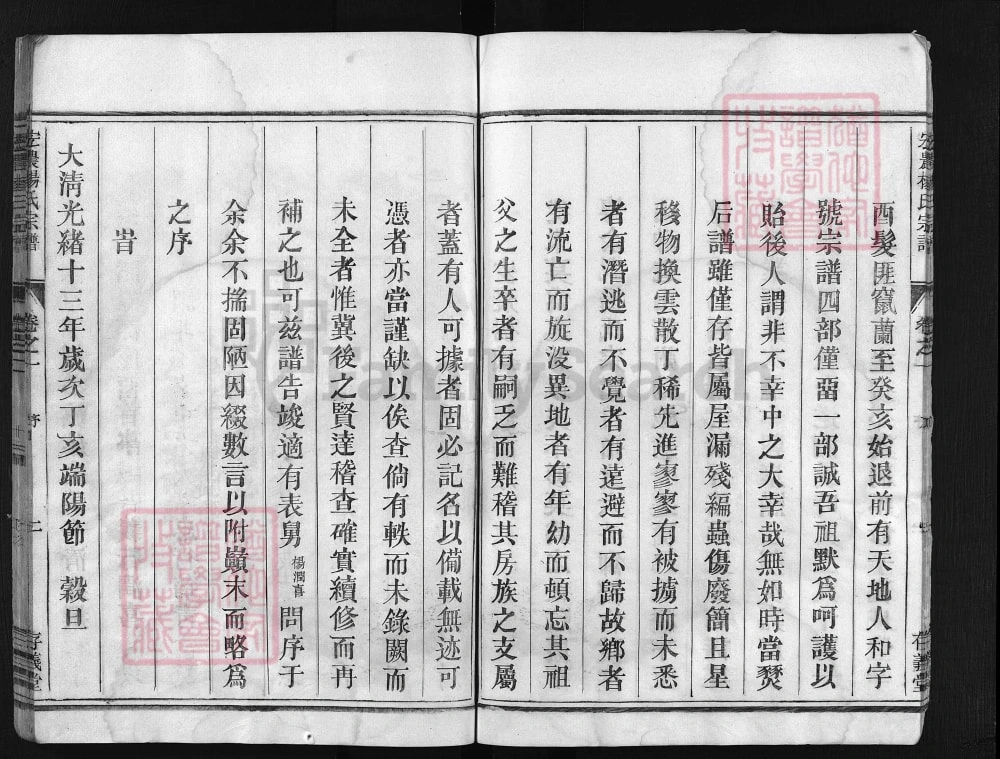 酉髮匪竄蘭至癸亥始退前有天地人和字
號宗譜四部僅畱一部誠吾祖默爲呵護以
貽後人謂非不幸中之大幸哉無如時當燹
后譜雖僅存皆屬屋漏殘編蟲傷廢簡且星
移物換雲散丁稀先進寥寥有被擄而未悉
者有潛逃而不覺者有遠避而不歸故鄉者
有流亡而旋没異地者有年幼而頓忘其祖
父之生卒者有嗣乏而難稽其房族之支屬
者蓋有人可據者固必記名以備載無迹可
憑者亦當謹缺以俟查倘有軼而未錄闕而
未全者惟冀後之賢達稽查確實續修而再
補之也可兹譜告竣適有表舅楊潤喜問序于
余余不揣固陋因綴數言以附巔末而略爲
之序
旹
大清光緒十三年歲次丁亥端陽節 穀旦
宏農楊氏宗譜 卷之一 序 二 存義堂